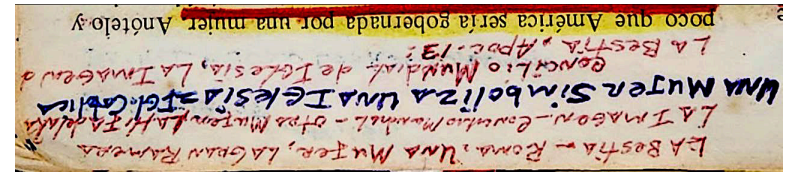 LA BESTIA - ROMA, UNA MUJER, LA GRAN RAMERA
LA IMAGEN - Concilio Mundial - otra MUJER, LA H.
UNA MUJER SIMBOLIZA UNA IGLESIA = IGL. Catolica
CONCILIO MUNDIAL de IGLESIA, LA IMAGEN D
LA BESTIA, Apoc. 13:
poco que América sería gobernada por una mujer. Anótelo y